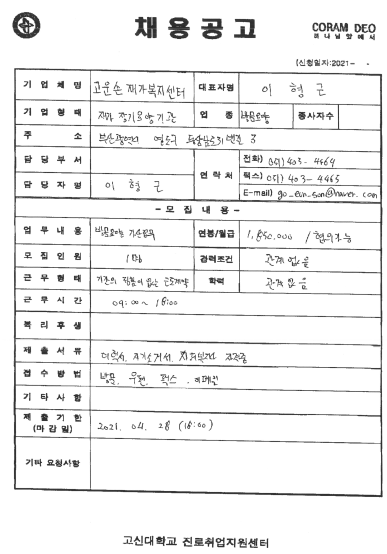 채용공고
CORAM DEO
하나님앞에서
(신청일자:2021- -
기 업 체 명 고운손 재가복지센터 대표자명 이 형 근
기 업 형 태 재가 장기요양기관 업 종 방문요양 종사자수
주 소 부산광역시 영도구 3
담 당 부 서 연 락 처 전화) 051) 403 - 4464
팩스) 051) 403 - 4465
담 당 자 명 이 형 근 E-mail) go_eun_son@naver.com
- 모 집 내 용 -
업 무 내 용 방문요양 연봉/월급 1,850,000 /협의가능
모 집 인 원 1명 경력조건 관계 없음
근 무 형 태 기간의 정함이 없는 근로계약 학력 관계 없음
근 무 시 간 09:00 ~ 18:00
복 리 후 생
제 출 서 류 이력서, 자기소개서, 자격증
접 수 방 법 방문, 우편, 팩스, 이메일
기 타 사 항
제 출 기 한 2021. 04. 28 (18:00)
(마 감 일)
기타 요청사항
고신대학교 진로취업지원센터